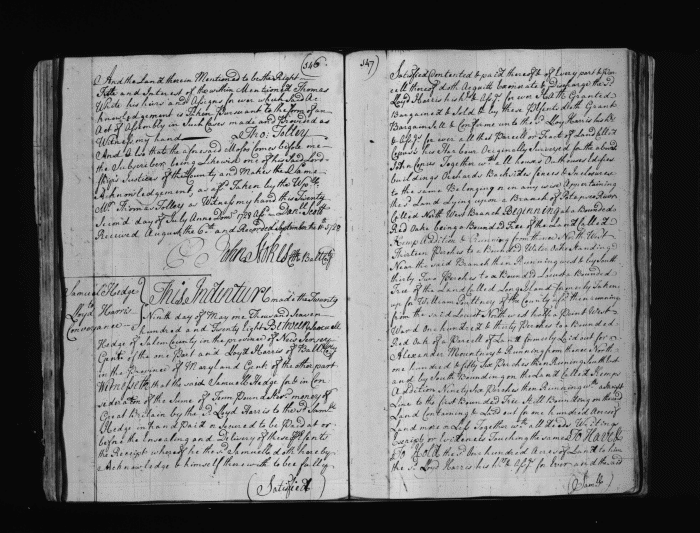 346
& And the Land therein Mentioned to be the Right
Title and Interest of the within Mentioned Thomas
White his heirs and Assigns for ever which said Ac=
knowledgement is Taken Pursuant to the form of an
Act of Assembly in Such Cases made and Provided as
Witness my hand
Tho: Tolley
And Also that the aforesaid comes before me
the Subscriber being Likewise one of his Lordships
Justices of the County and Makes the Same
Acknowledgement, as afd Taken by the Wpll
Mr. Thomas Tolley as Witness my hand this Twenty
Second day of July Anno Dom 1728
Received August the 6th and Recorded September 1728
John Stokes Clk Balt Cty
Samuel Hedge
to
Lloyd Harris
Conveyance
This Indenture made the Twenty
Ninth day of May one Thousand Seaven
hundred and Twenty Eight Between Samuell
Hedge of Salem County in the province of New Jersey
Gent of the one Part and Lloyd Harris of Balt
in the Province of Maryland Gent of the other part
Witnesseth that the said Samuell Hedge for & in Con
sideration of the Sume of Term Pound Ster. money of
Great Britain by the sd Lloyd Harris to the sd Samuell
Hedge in hand Paid or Secured to be Paid at or
before the Ensealing and Delivery of these Psents
the Receipt whereof he the sd Samuell doth hereby
Acknowledge & himself therewith to be fully
(Satisfied
347
Satisfied Contented & paid thereof & of Every part & Par
cell thereof doth Acquitt Exonerate & Discharge the sd
Lloyd Harris his hrs & Assgs for ever Hath Granted
Bargained & Sold & by these Psents doth Grant
Bargain Sell & Confirm unto the sd Lloyd Harris his hrs
& Assgs for ever all that Parcell or Tract of Land Called
Come's Harbour Originally Surveyed for the afd
John Come's Together wth all houses Outhouses Edifices
buildings Orchards Backsides fences & Inclosures
to the same Belonging or in any wise Appertaining
the sd Land Lying upon a Branch of Petapsco River
Called North West Branch Beginning at a Bounded
Red Oake being a Bounded Tree of the Land Called
Kemps Addition & Running from thence North West
Thirteen Perches to a Bounded White Oake standing
Near the said Branch then Running West
thirty Two Perches to a Bounded
Tree of the Land Called Long Island formerly Taken
up by William Puttney of the County afd then running
from the said Locust Northwest half a Point West
Ward One hundred & thirty Perches to a Bounded
Red Oak of a Parcell of Land formerly Laid out for
Alexander Mountney & Running from thence North
one hundred & fifty Six Perches then Running South
and by South Bounding on the Land Called Kemps
Addition Ninety Six Perches then Running wth a Streight
Line to the first Bounded Tree Still Bounding on the said
Land Containing & Laid out for one hundred Acres of
Land more or less Together wth all Deeds Writings
Escripts or Evidences Touching the same To Have &
To Hold the sd one hundred Acres of Land to him
the sd Lloyd Harris his hrs & Assgs for Ever and the said
(Samll